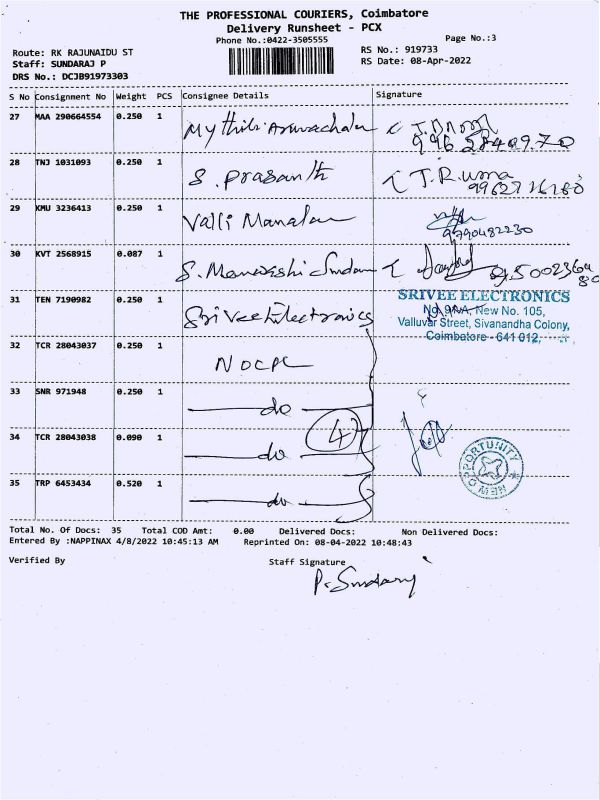 THE PROFESSIONAL COURIERS, Coimbatore
Delivery Runsheet - PCX
Phone No.:0422-3505555
Page No.:3
Route: RK RAJUNAIDU ST
Staff: SUNDARAJ P
DRS No.: DCJB91973303
RS No.: 919733
RS Date: 08-Apr-2022
S No Consignment No Weight PCS Consignee Details Signature
27 MAA 290664554 0.250 1 Mythili
28 TNJ 1031093 0.250 1 S. Prasanth T.R.uma
29 KMU 3236413 0.250 1 Valli Manalan
9790482230
30 KVT 2568915 0.087 1 S.
31 TEN 7190982 0.250 1 Srivee Electronics
SRIVEE ELECTRONICS
New No. 105,
Valluvar Street, Sivanandha Colony,
Coimbatore - 641 012.
32 TCR 28043037 0.250 1 NOCPL
33 SNR 971948 0.250 1 do
4
34 TCR 28043038 0.090 1 do
NEW OPPORTUNITY
35 TRP 6453434 0.520 1 do
Total No. Of Docs: 35 Total COD Amt: 0.00 Delivered Docs: Non Delivered Docs:
Entered By :NAPPINAX 4/8/2022 10:45:13 AM Reprinted On: 08-04-2022 10:48:43
Verified By Staff Signature
P. Sundaraj